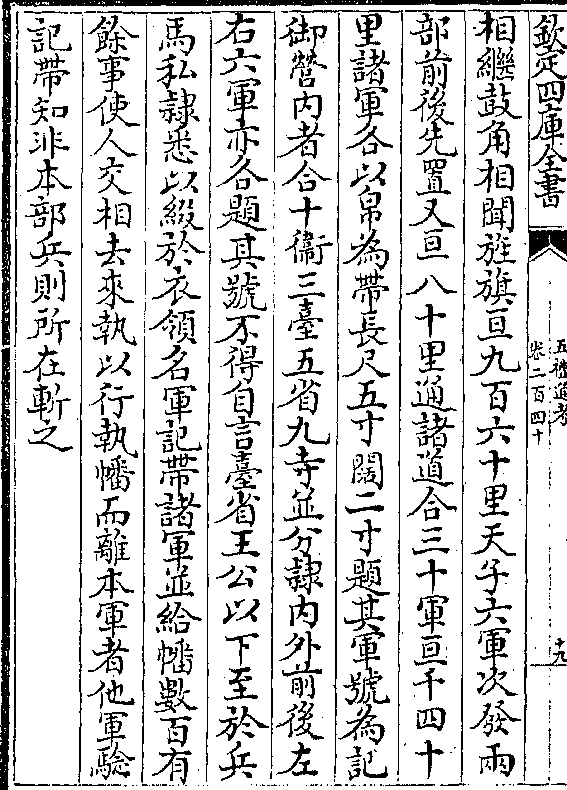 欽定四庫全書
五禮通考
卷二百四十
十九
相繼鼓角相聞旌旗亘九百六十里天子六軍次發兩
部前後先置又亘八十里通諸道合三十軍亘千四十
里諸軍各以帛為帶長尺五寸闊二寸題其軍號為記
御營内者合十衞三臺五省九寺並分隷内外前後左
右六軍亦各題其號不得自言臺省王公以下至於兵
馬私隷悉以綴於衣領名軍記帶諸軍並給幡數百有
餘事使人交相去來執以行執幡而離本軍者他軍驗
記帶知非本部兵則所在斬之